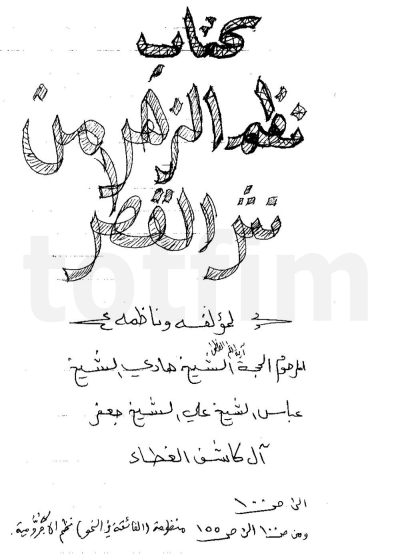 كتاب
نظم الزهر من
نثر القطر
totfim
لمؤلفه وناظمه
المرحوم الحجة آية الله العظمى الشيخ هادي الشيخ
عباس الشيخ علي الشيخ جعفر
آل كاشف الغطاء
الى ص ١٠٠
ومن ص ١٠٠ الى ص ١٥٥ منظومة (الفائقة في النحو) نظم الاجرومية.